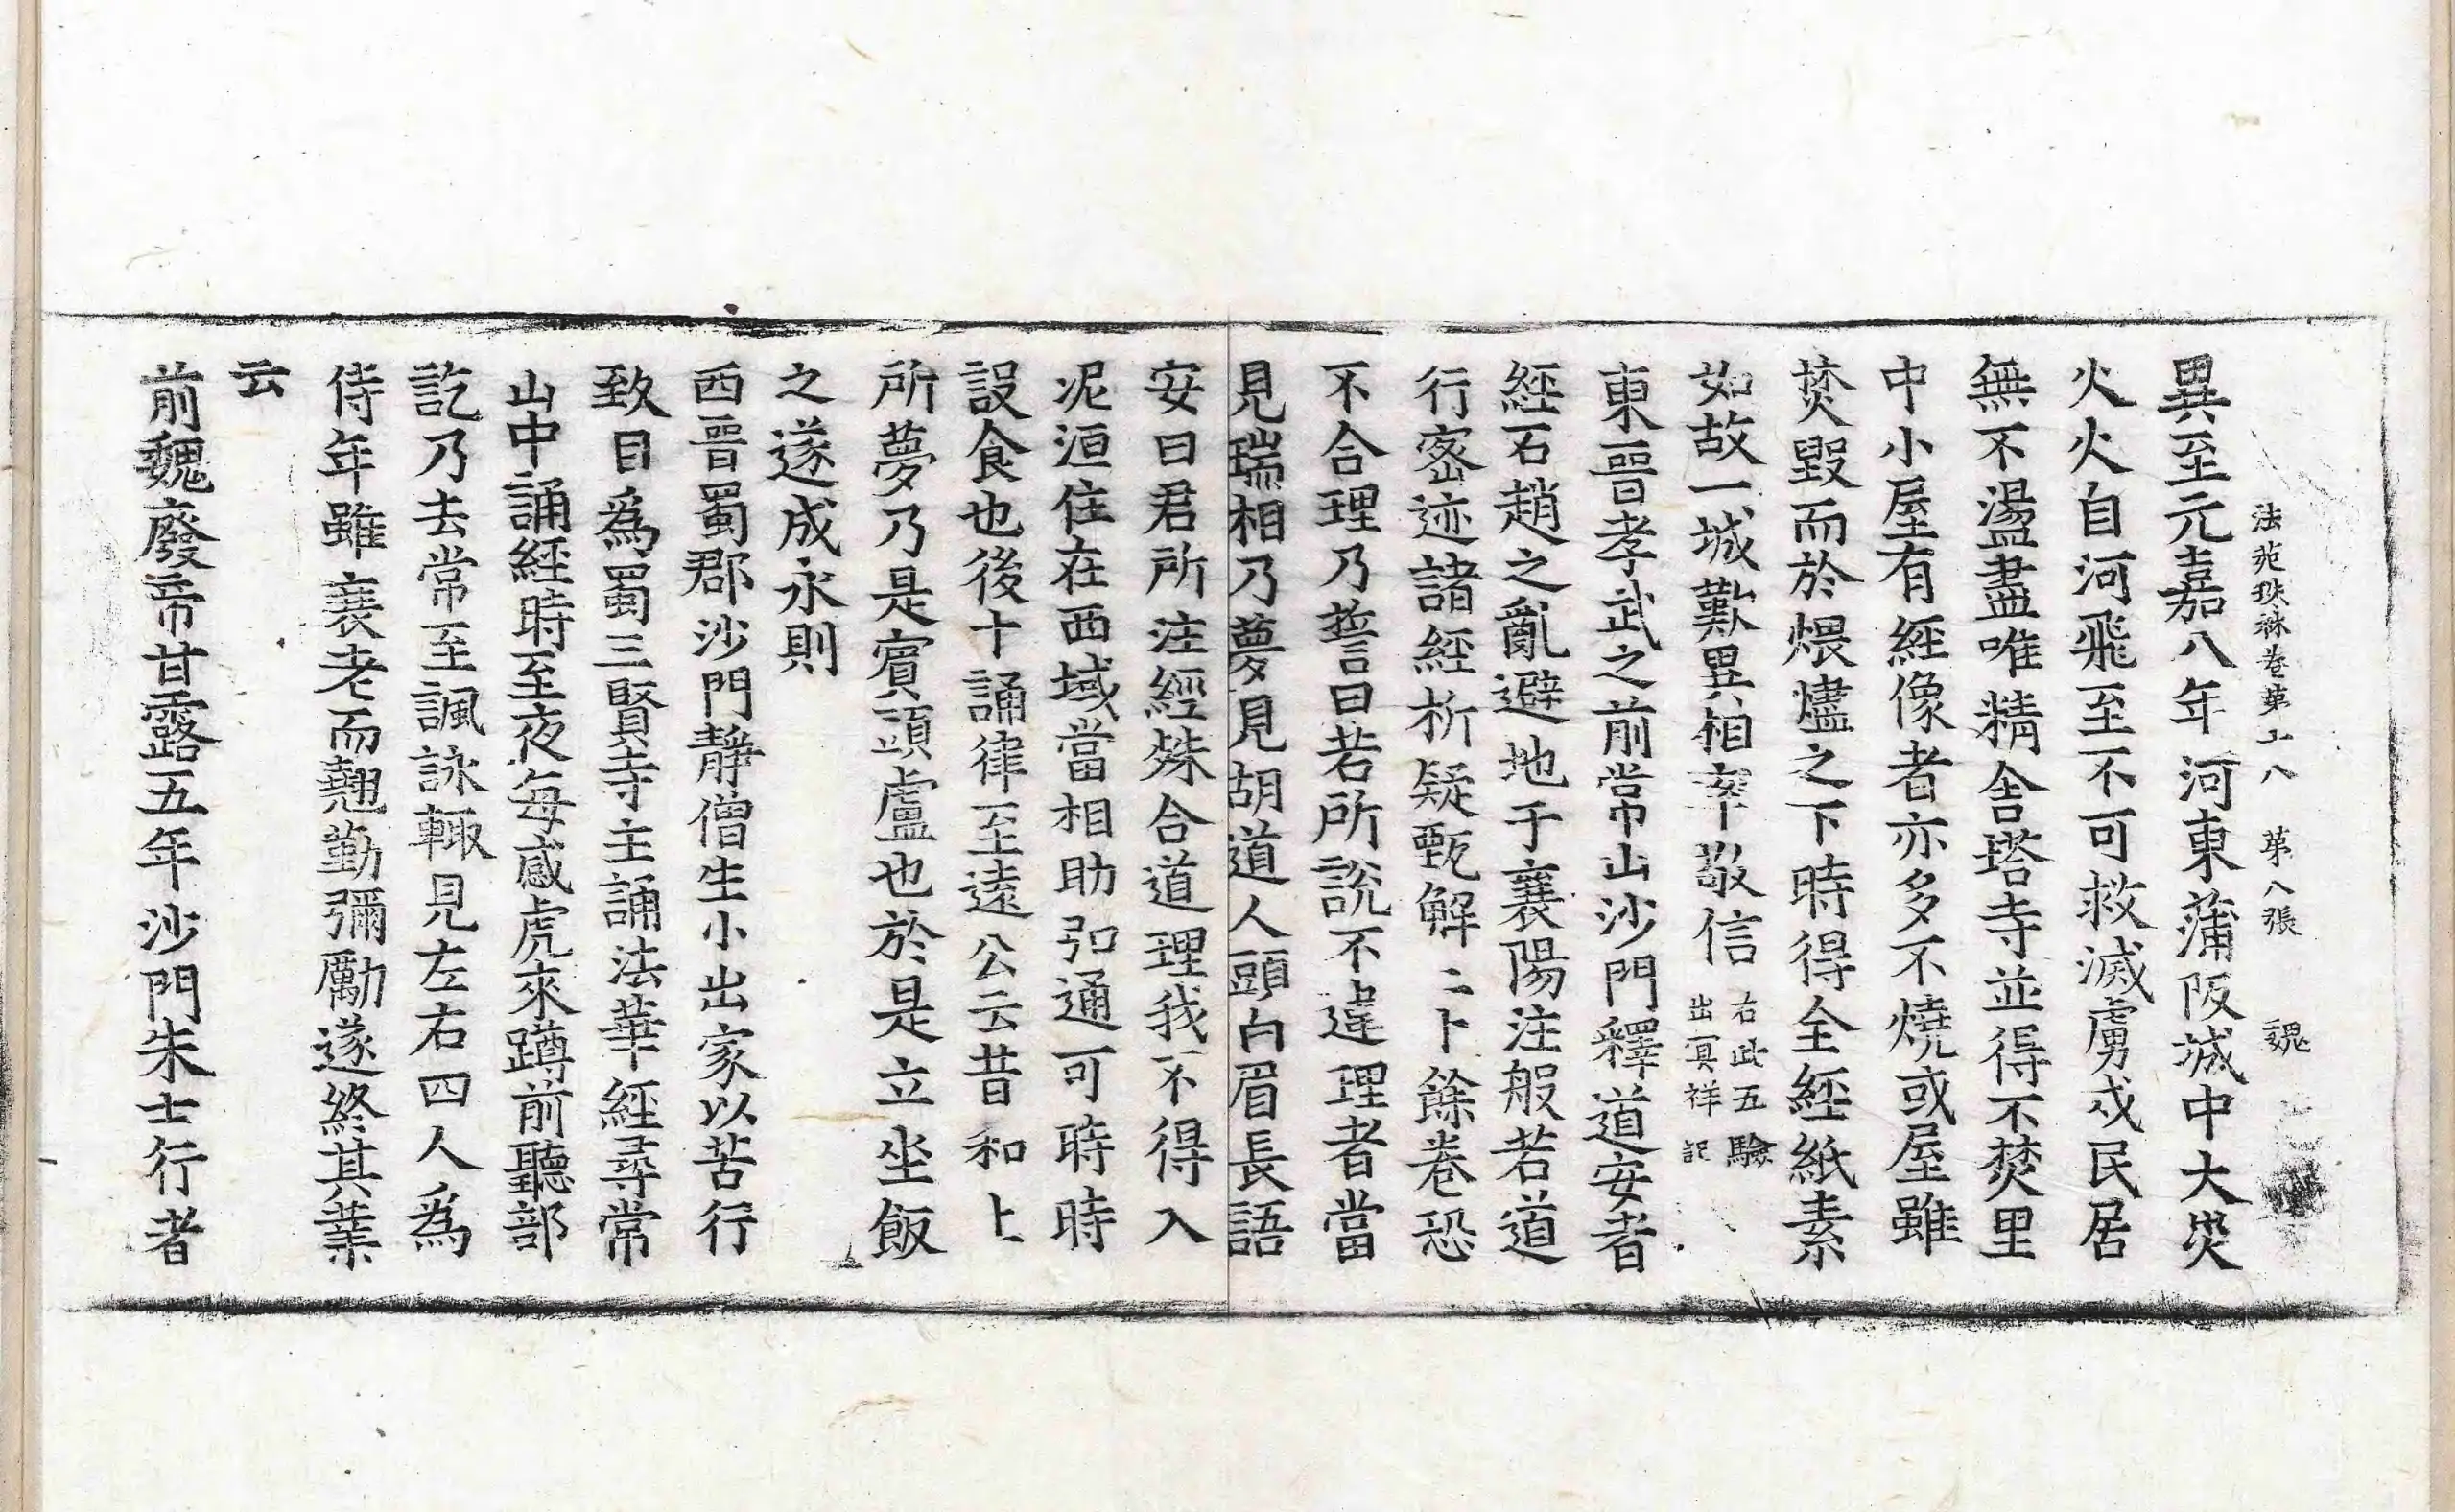 法苑珠林卷第十八 第八張 魏
異至元嘉八年河東蒲阪城中大災
火火自河飛至不可救滅虜戎民居
無不湯盡唯精舍塔寺並得不焚里
中小屋有經像者亦多不燒或屋雖
焚毀而於煨燼之下時得全經紙素
如故一城歎異相率敬信右此五驗出冥祥記
東晉孝武之前常山沙門釋道安者
經石趙之亂避地于襄陽注般若道
行密迹諸經析疑甄解二十餘卷恐
不合理乃誓曰若所說不違理者當
見瑞相乃夢見胡道人頭白眉長語
安曰君所注經殊合道理我不得入
泥洹住在西域當相助弘通可時時
設食也後十誦律至遠公云昔和上
所夢乃是賓頭盧也於是立坐飯
之遂成永則
西晉蜀郡沙門靜僧生小出家以苦行
致目爲蜀三賢寺主誦法華經尋常
山中誦經時至夜每感虎來蹲前聽部
訖乃去常至諷詠輒見左右四人爲
侍年雖衰老而翹勤彌勵遂終其業
云
前魏廢帝甘露五年沙門朱士行者